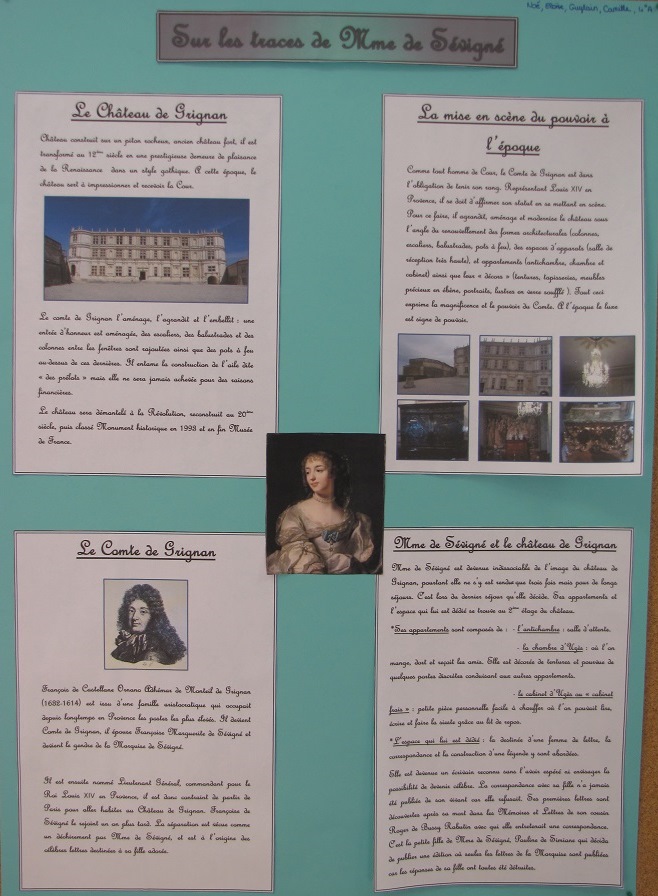 Noé, Eloïse, Guylain, Camille, 4°A
Sur les traces de Mme de Sévigné
Le Château de Grignan
Château construit sur un piton rocheux, ancien château fort, il est
transformé au 12ème siècle en une prestigieuse demeure de plaisance
de la Renaissance dans un style gothique. A cette époque, le
château sert à impressionner et recevoir la Cour.
Le comte de Grignan l'aménage, l'agrandit et l'embellit : une
entrée d'honneur est aménagée, des escaliers, des balustrades et des
colonnes entre les fenêtres sont rajoutées ainsi que des pots à feu
au-dessus de ces dernières. Il entame la construction de l'aile dite
« des prélats » mais elle ne sera jamais achevée pour des raisons
financières.
Le château sera démantelé à la Révolution, reconstruit au 20ème
siècle, puis classé Monument historique en 1993 et en fin Musée
de France.
La mise en scène du pouvoir à
l'époque
Comme tout homme de Cour, le Comte de Grignan est dans
l'obligation de tenir son rang. Représentant Louis XIV en
Provence, il se doit d'affirmer son statut en se mettant en scène.
Pour ce faire, il agrandit, aménage et modernise le château sous
l'angle du renouvellement des formes architecturales (colonnes,
escaliers, balustrades, pots à feu), des espaces d'apparats (salle de
réception très haute), et appartements (antichambre, chambre et
cabinet) ainsi que leur « décors » (tentures, tapisseries, meubles
précieux en ébène, portraits, lustres en verre soufflé ). Tout ceci
exprime la magnificence et le pouvoir du Comte. A l'époque le luxe
est signe de pouvoir.
Le Comte de Grignan
François de Castellane Ornano Adhémar de Monteil de Grignan
(1632-1614) est issu d'une famille aristocratique qui occupait
depuis longtemps en Provence les postes les plus élevés. Il devient
Comte de Grignan, il épouse Françoise Marguerite de Sévigné et
devient le gendre de la Marquise de Sévigné.
Il est ensuite nommé Lieutenant Général, commandant pour le
Roi Louis XIV en Provence, il est donc contraint de partir de
Paris pour aller habiter au Château de Grignan. Françoise de
Sévigné le rejoint un an plus tard. La séparation est vécue comme
un déchirement par Mme de Sévigné, et est à l'origine des
célèbres lettres destinées à sa fille adorée.
Mme de Sévigné et le château de Grignan
Mme de Sévigné est devenue indissociable de l'image du château de
Grignan, pourtant elle ne s'y est rendue que trois fois mais pour de longs
séjours. C'est lors du dernier séjour qu'elle décède. Ses appartements et
l'espace qui lui est dédié se trouve au 2ème étage du château.
*Ses appartements sont composés de : - l'antichambre : salle d'attente.
- la chambre d'Uzès : où l'on
mange, dort et reçoit les amis. Elle est décorée de tentures et pourvue de
quelques portes discrètes conduisant aux autres appartements.
- le cabinet d'Uzès au « cabinet
frais » : petite pièce personnelle facile à chauffer où l'on pouvait lire,
écrire et faire la sieste grâce au lit de repos.
*L'espace qui lui est dédié : la destinée d'une femme de lettre, la
correspondance et la construction d'une légende y sont abordées.
Elle est devenue un écrivain reconnu sans l'avoir espéré ni envisager la
possibilité de devenir célèbre. La correspondance avec sa fille n'a jamais
été publiée de son vivant car elle refusait. Ses premières lettres sont
découvertes après sa mort dans les Mémoires et Lettres de son cousin
Roger de Bussy Rabutin avec qui elle entretenait une correspondance.
C'est la petite fille de Mme de Sévigné, Pauline de Simiane qui décida
de publier une édition où seules les lettres de la Marquise sont publiées
car les réponses de sa fille ont toutes été détruites.